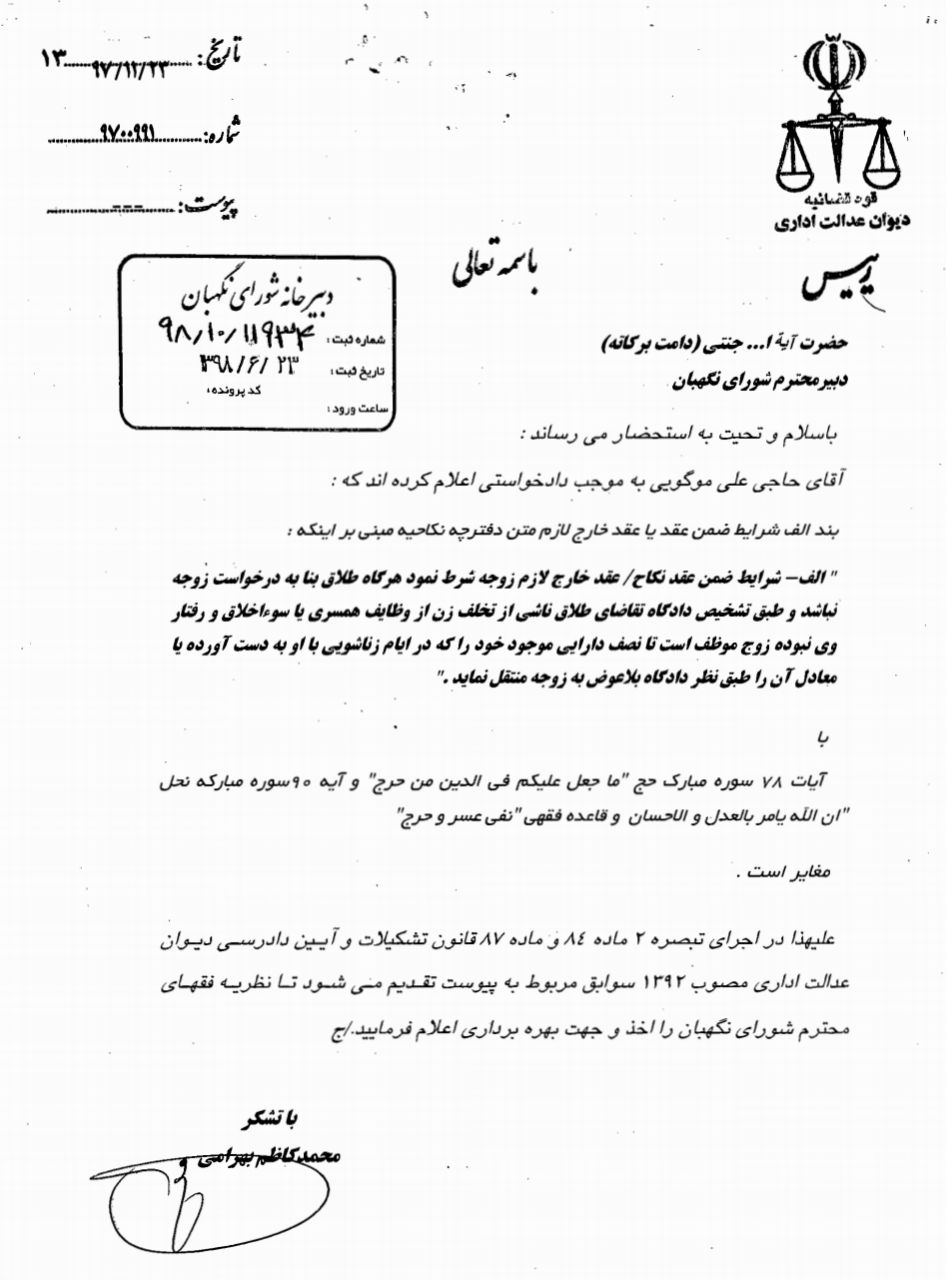 قوه قضائیه
دیوان عدالت اداری
رییس
تاریخ: ۱۳ ۹۷/۱۱/۲۳
شماره: ۹۷۰۰۹۹۱
پیوست: ---
باسمه تعالی
دبیرخانه شورای نگهبان
شماره ثبت: ۹۸/۱۰/۱۱۹۳۴
تاریخ ثبت: ۱۳۹۸/۶/۲۳
کد پرونده:
ساعت ورود:
حضرت آیة ا... جنتی (دامت برکاته)
دبیرمحترم شورای نگهبان
باسلام و تحیت به استحضار می رساند :
آقای حاجی علی موگویی به موجب دادخواستی اعلام کرده اند که :
بند الف شرایط ضمن عقد یا عقد خارج لازم متن دفترچه نکاحیه مبنی بر اینکه :
" الف- شرایط ضمن عقد نکاح/ عقد خارج لازم زوجه شرط نمود هرگاه طلاق بنا به درخواست زوجه
نباشد و طبق تشخیص دادگاه تقاضای طلاق ناشی از تخلف زن از وظایف همسری یا سوءاخلاق و رفتار
وی نبوده زوج موظف است تا نصف دارایی موجود خود را که در ایام زناشویی با او به دست آورده یا
معادل آن را طبق نظر دادگاه بلاعوض به زوجه منتقل نماید ."
با
آیات ۷۸ سوره مبارک حج "ما جعل علیکم فی الدین من حرج" و آیه ۹۰سوره مبارکه نحل
"ان الله یامر بالعدل و الاحسان و قاعده فقهی "نفی عسر و حرج"
مغایر است .
علیهذا در اجرای تبصره ۲ ماده ۸٤ و ماده ۸۷ قانون تشکیلات و آیین دادرسی دیوان
عدالت اداری مصوب ۱۳۹۲ سوابق مربوط به پیوست تقدیم می شود تا نظریه فقهای
محترم شورای نگهبان را اخذ و جهت بهره برداری اعلام فرمایید./ج
با تشکر
محمدکاظم بهرامی